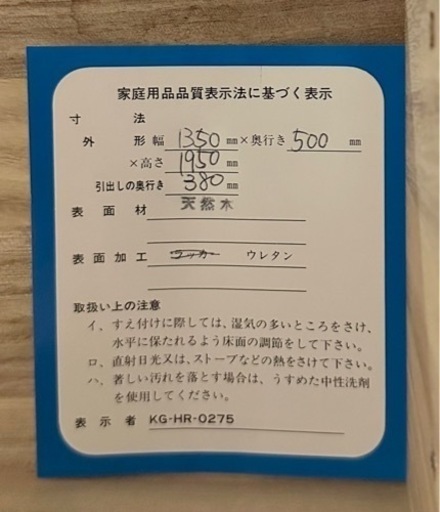 家庭用品品質表示法に基づく表示
寸法
外形 幅 1350 mm × 奥行き 500 mm
×高さ 1950 mm
引出しの奥行き 380 mm
表面材 天然木
表面加工 ラッカー ウレタン
取扱い上の注意
イ、すえ付けに際しては、湿気の多いところをさけ、
水平に保たれるよう床面の調節をして下さい。
ロ、直射日光又は、ストーブなどの熱をさけて下さい。
ハ、著しい汚れを落とす場合は、うすめた中性洗剤
を使用してください。
表示者 KG-HR-0275